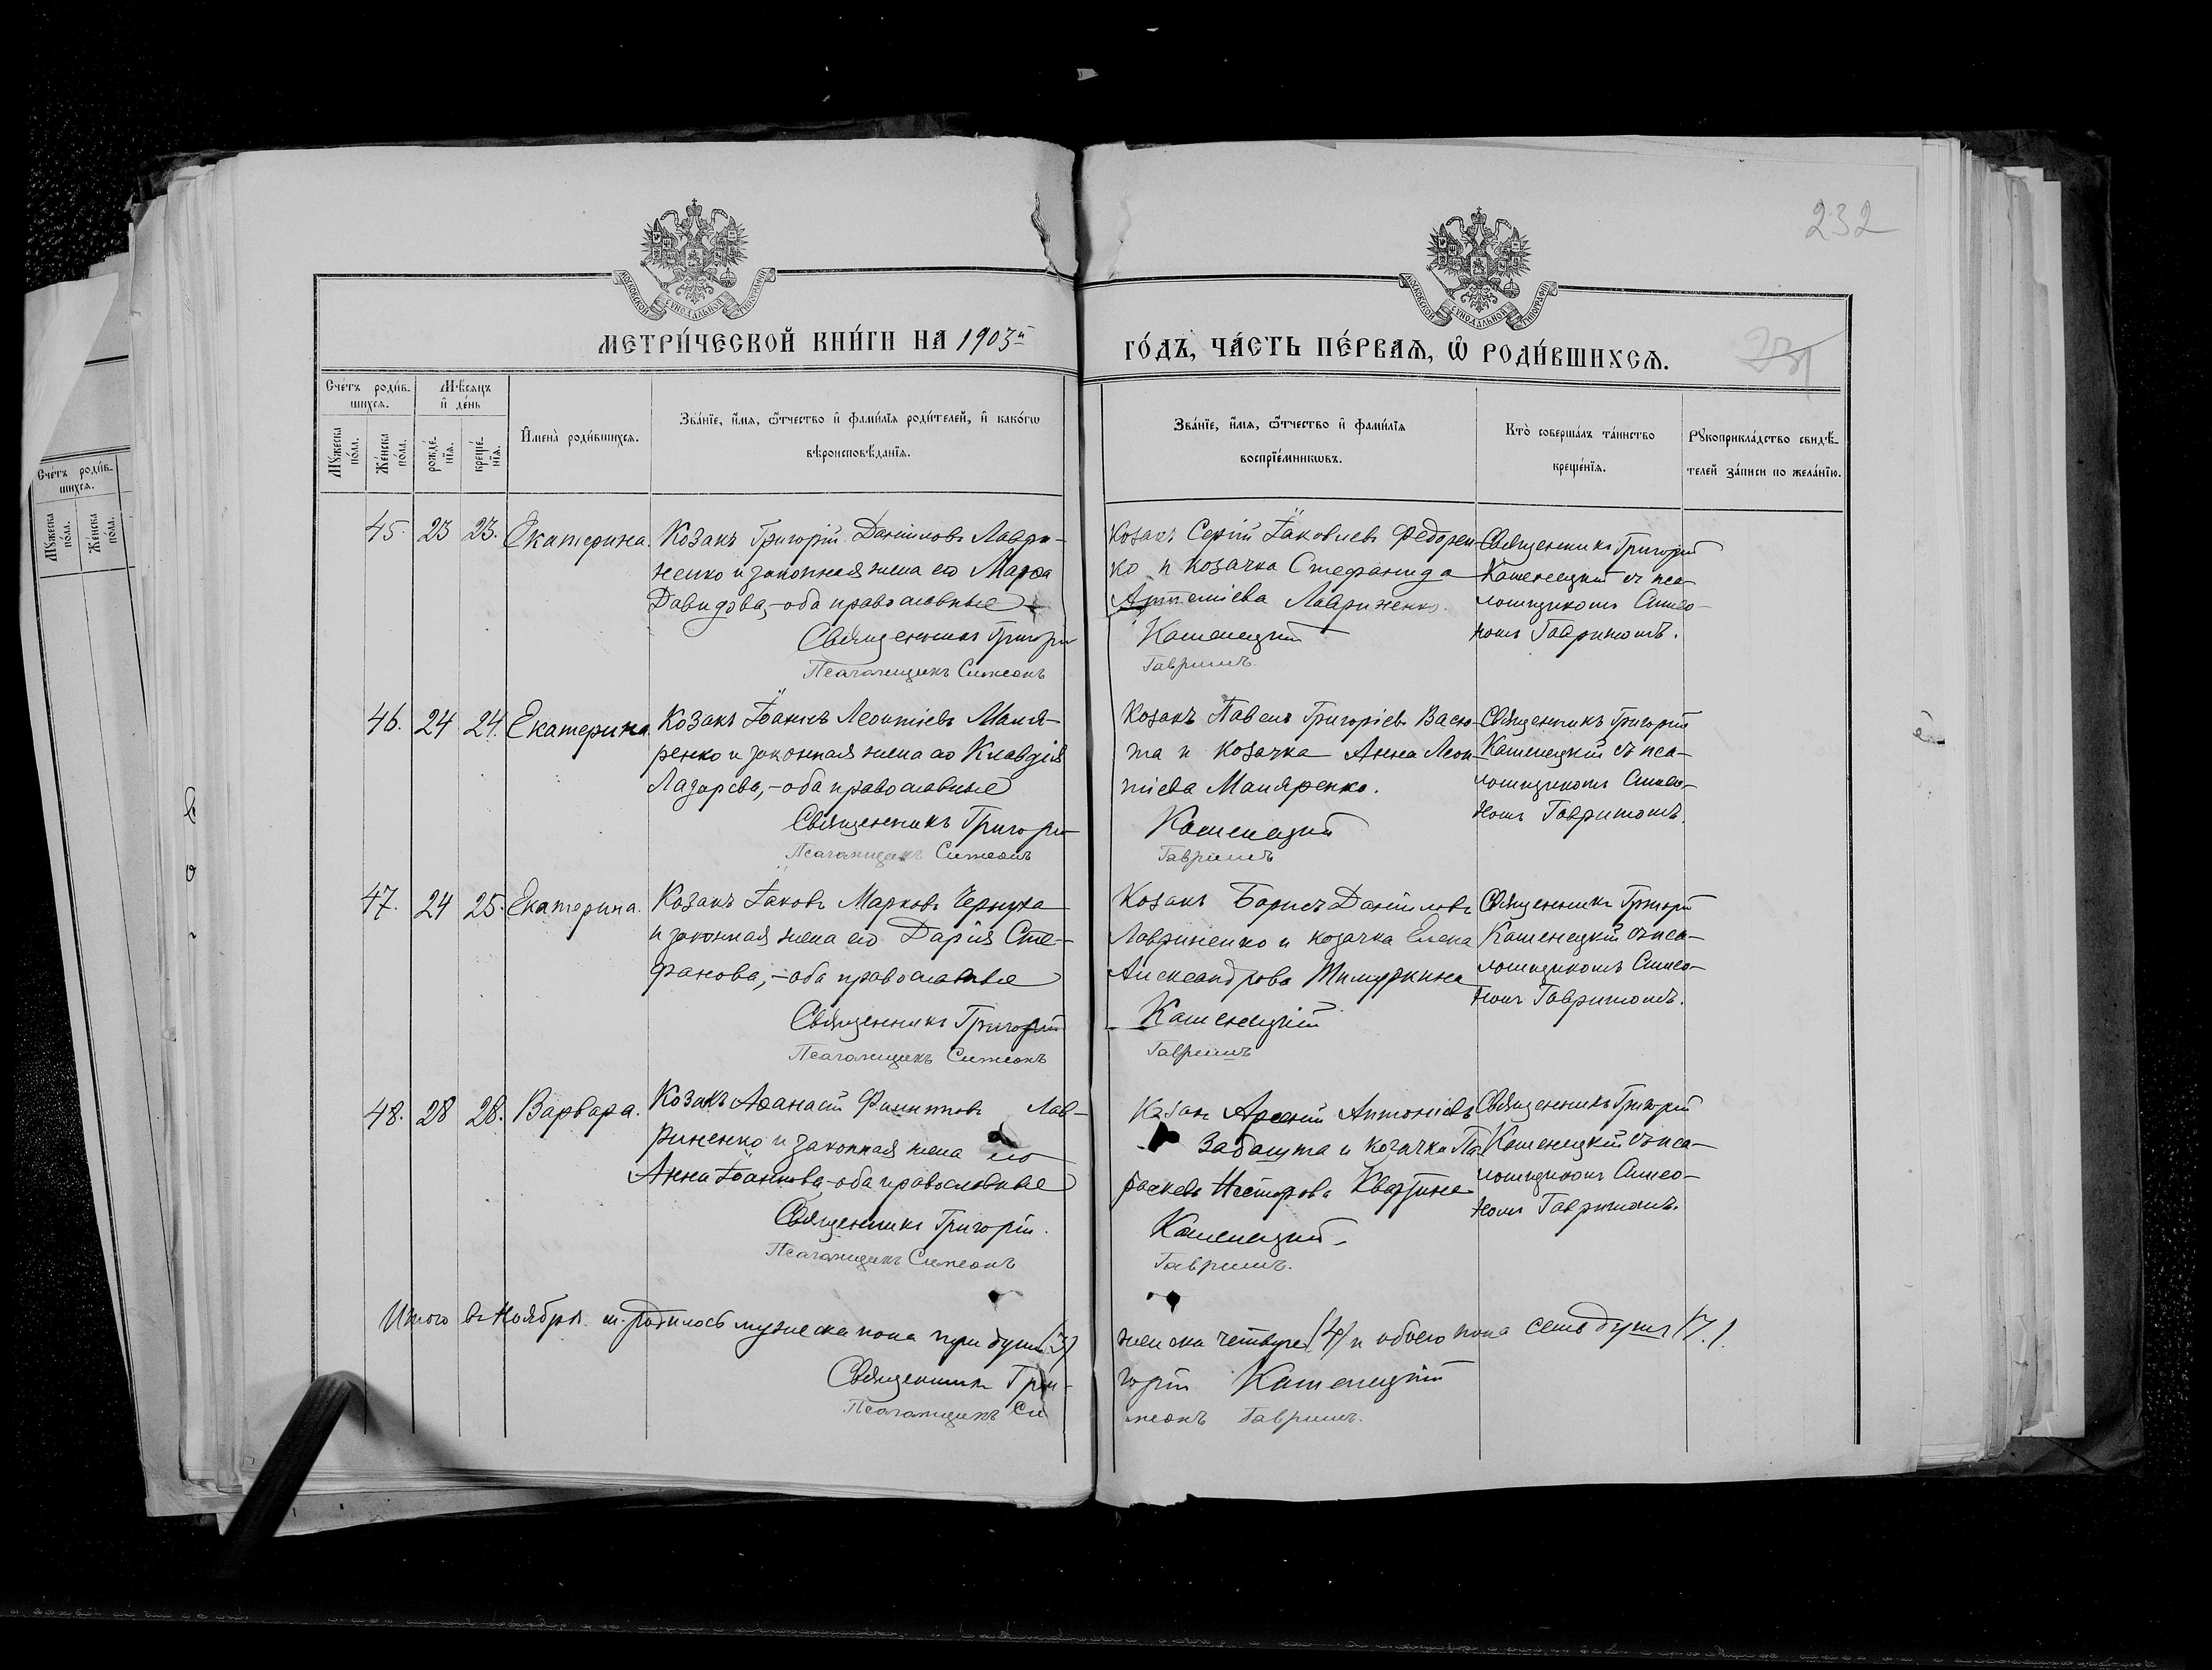 232
МОСКОВСКОЙ СУНОДАЛЬНОЙ ТИПОГРАФІИ
МОСКОВСКОЙ СУНОДАЛЬНОЙ ТИПОГРАФІИ
МЕТРИ́ЧЕСКОЙ КНИ́ГИ НА 1903й
ГО́ДЪ, ЧА́СТЬ ПЕ́РВАѦ, Ѡ҆ РОДИ́ВШИХСѦ.
231
Сче́тъ роди́в-
шихсѧ.
Мꙋ́жеска
по́ла.
Же́нска
по́ла.
Мѣ́сѧцъ
и҆ де́нь
рожде́-
нїѧ.
креще́-
нїѧ.
И҆мена̀ роди́вшихсѧ.
Зва́нїе, и҆́мѧ, ѻ҆́тчество и҆ фами́лїѧ роди́телей, и҆ како́гѡ
вѣроисповѣ́данїѧ.
Зва́нїе, и҆́мѧ, ѻ҆́тчество и҆ фами́лїѧ
воспрїе́мникѡвъ.
Кто̀ соверша́лъ та́инство
креще́нїѧ.
Рꙋкоприкла́дство свидѣ́-
телей за́писи по жела́нїю.
Сче́тъ роди́в-
шихсѧ.
Мꙋ́жеска
по́ла.
Же́нска
по́ла.
45. 23 23. Екатерина. Козакъ Григорій Даніиловъ Лаври-
ненко и законная жена его Марѳа
Давидова,-оба православные
Священникъ Григорій
Псаломщикъ Симеонъ
Козакъ Сергій Іаковлевъ Федорен-
ко и козачка Стефанида
Артеміева Лавриненко.
Каменецкій
Гавришъ.
Священникъ Григорій
Каменецкій съ пса-
ломщикомъ Симео-
номъ Гавришомъ.
46. 24 24. Екатерина. Козакъ Іоаннъ Леонтіевъ Маля-
ренко и законная жена его Клавдія
Лазарева,-оба православные
Священникъ Григорій
Псаломщикъ Симеонъ
Козакъ Павелъ Григоріевъ Васю-
та и козачка Анна Леон-
тіева Маляренко.
Каменецкій
Гавришъ
Священникъ Григорій
Каменецкій съ пса-
ломщикомъ Симео-
номъ Гавришомъ.
47. 24 25. Екатерина. Козакъ Іаковъ Марковъ Чернуха
и законная жена его Дарія Сте-
фанова,-оба православные
Священникъ Григорій
Псаломщикъ Симеонъ
Козакъ Борисъ Даніиловъ
Лавриненко и козачка Елена
Александрова
Каменецкій
Гавришъ
Священникъ Григорій
Каменецкій съ пса-
ломщикомъ Симео-
номъ Гавришомъ.
48. 28 28. Варвара. Козакъ Аѳанасій Филипповъ Лав-
риненко и законная жена его
Анна Іоаннова,-оба православные
Священникъ Григорій.
Псаломщикъ Симеонъ
Козакъ Арсеній Антоніевъ
Забашта и козачка Па-
раскева Несторова
Каменецкій
Гавришъ.
Священникъ Григорій
Каменецкій съ пса-
ломщикомъ Симео-
номъ Гавришомъ.
Итого въ Ноябрѣ м. родилось мужеска пола три души (3)
женска четыре (4) и обоего пола семь душъ (7.).
Священникъ Гри-
горій Каменецкій
Псаломщикъ Си
меонъ Гавришъ.